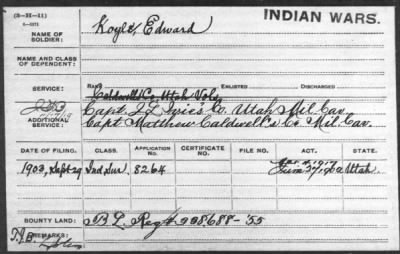 (3-H-11)
INDIAN WARS.
NAME OF SOLDIER: Koyle, Edward
NAME AND CLASS OF DEPENDENT:
SERVICE: RANK ENLISTED DISCHARGED
Caldwell's Co, Utah Vols,
Capt. Co. Utah Mil. Cav.
ADDITIONAL SERVICE: Capt Matthew Caldwell's Co Mil. Cav.
DATE OF FILING. CLASS. APPLICATION NO. CERTIFICATE NO. FILE NO. ACT. STATE.
1903, Sept 29 Ind Sur. 8264 Mar. 4, 1917 Utah.
BOUNTY LAND: B L Reg 208.688-'55
REMARKS: